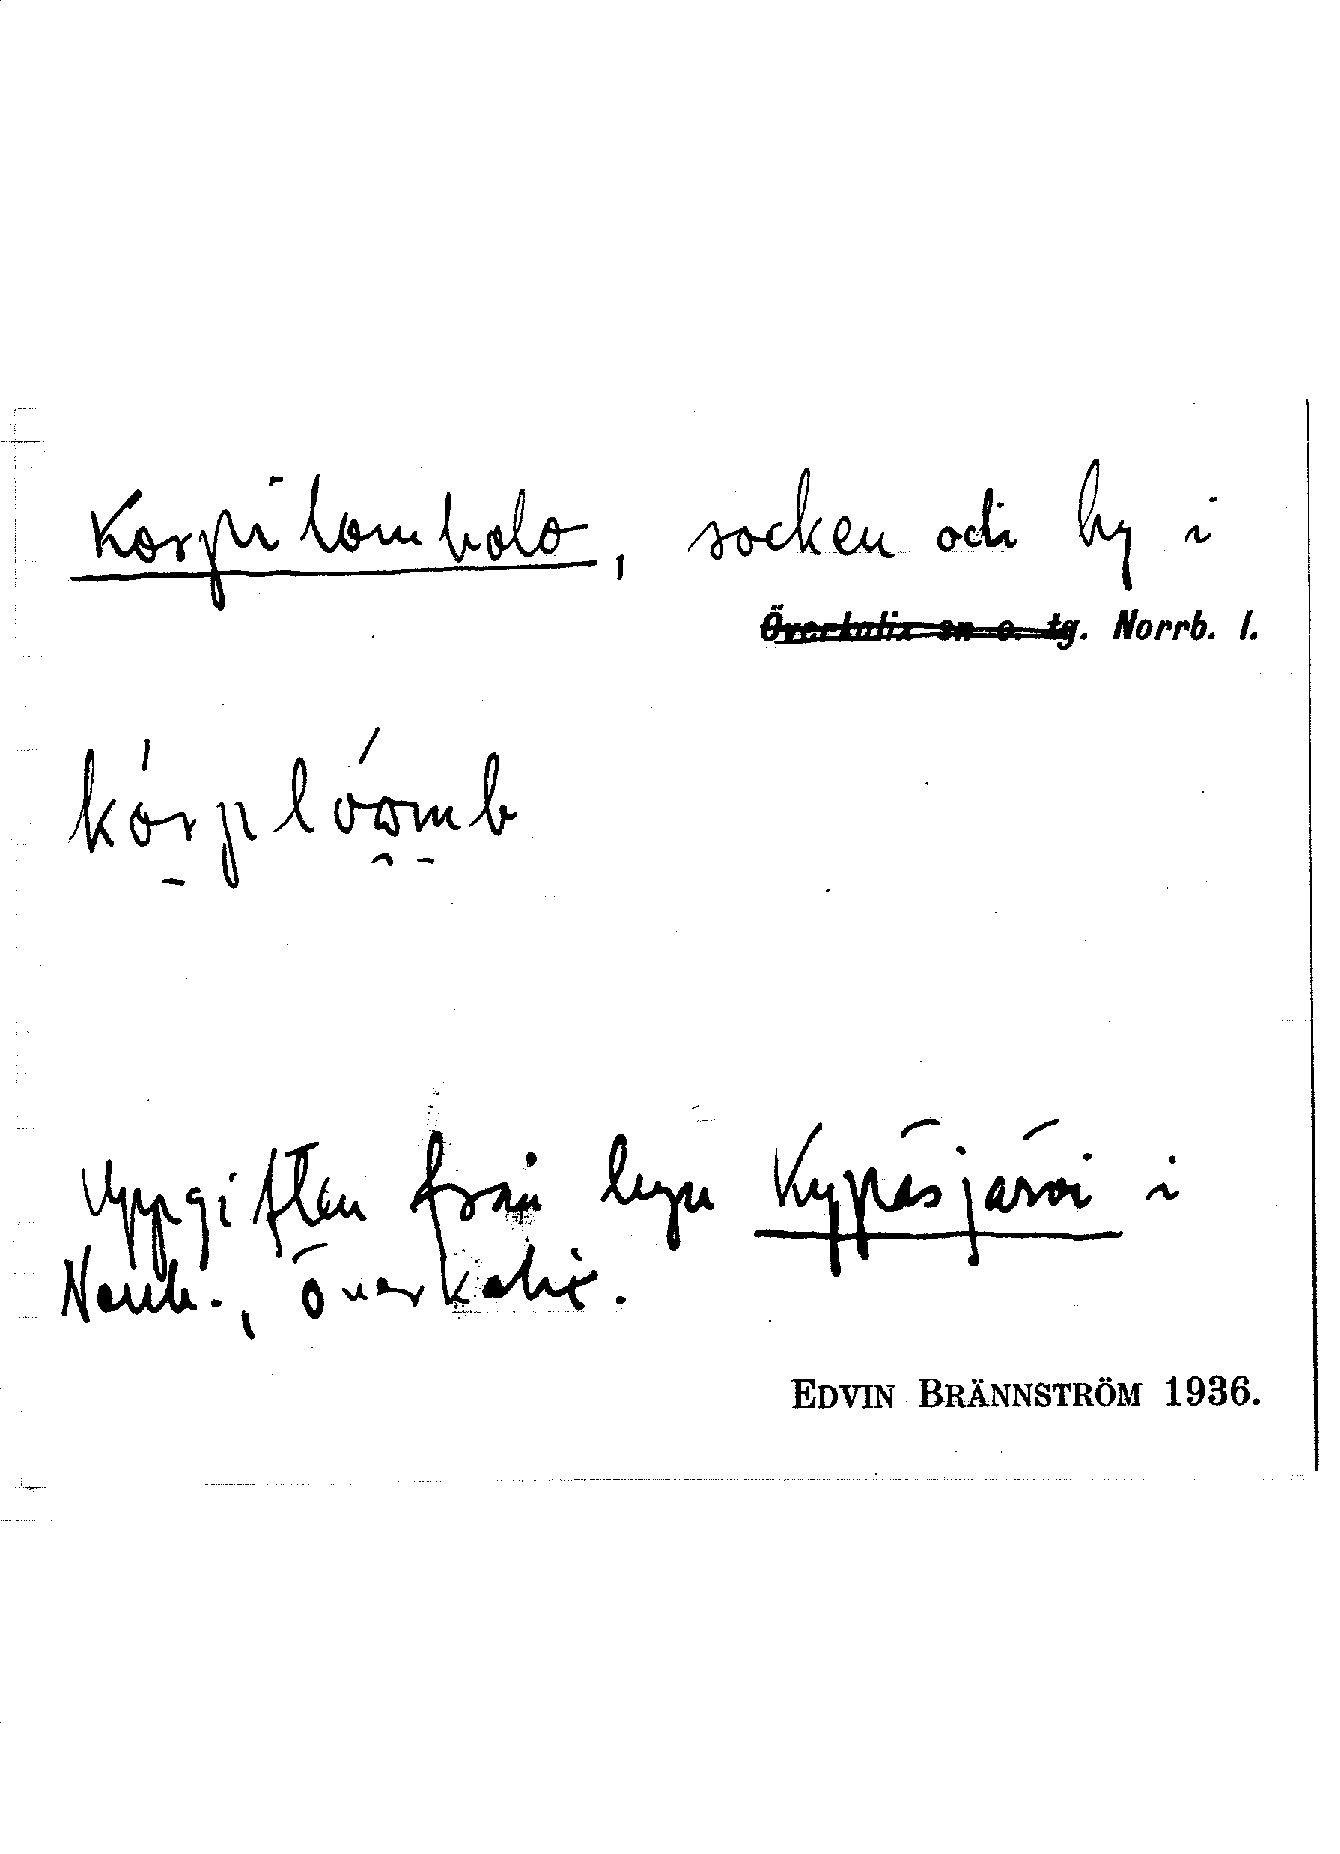 Korpilombolo, socken och by i
Överkalix sn o. tg. Norrb. l.
kórplóωmb
Uppgiften från byn Kypäsjärvi i
Norrb., Överkalix.
EDVIN BRÄNNSTRÖM 1936.